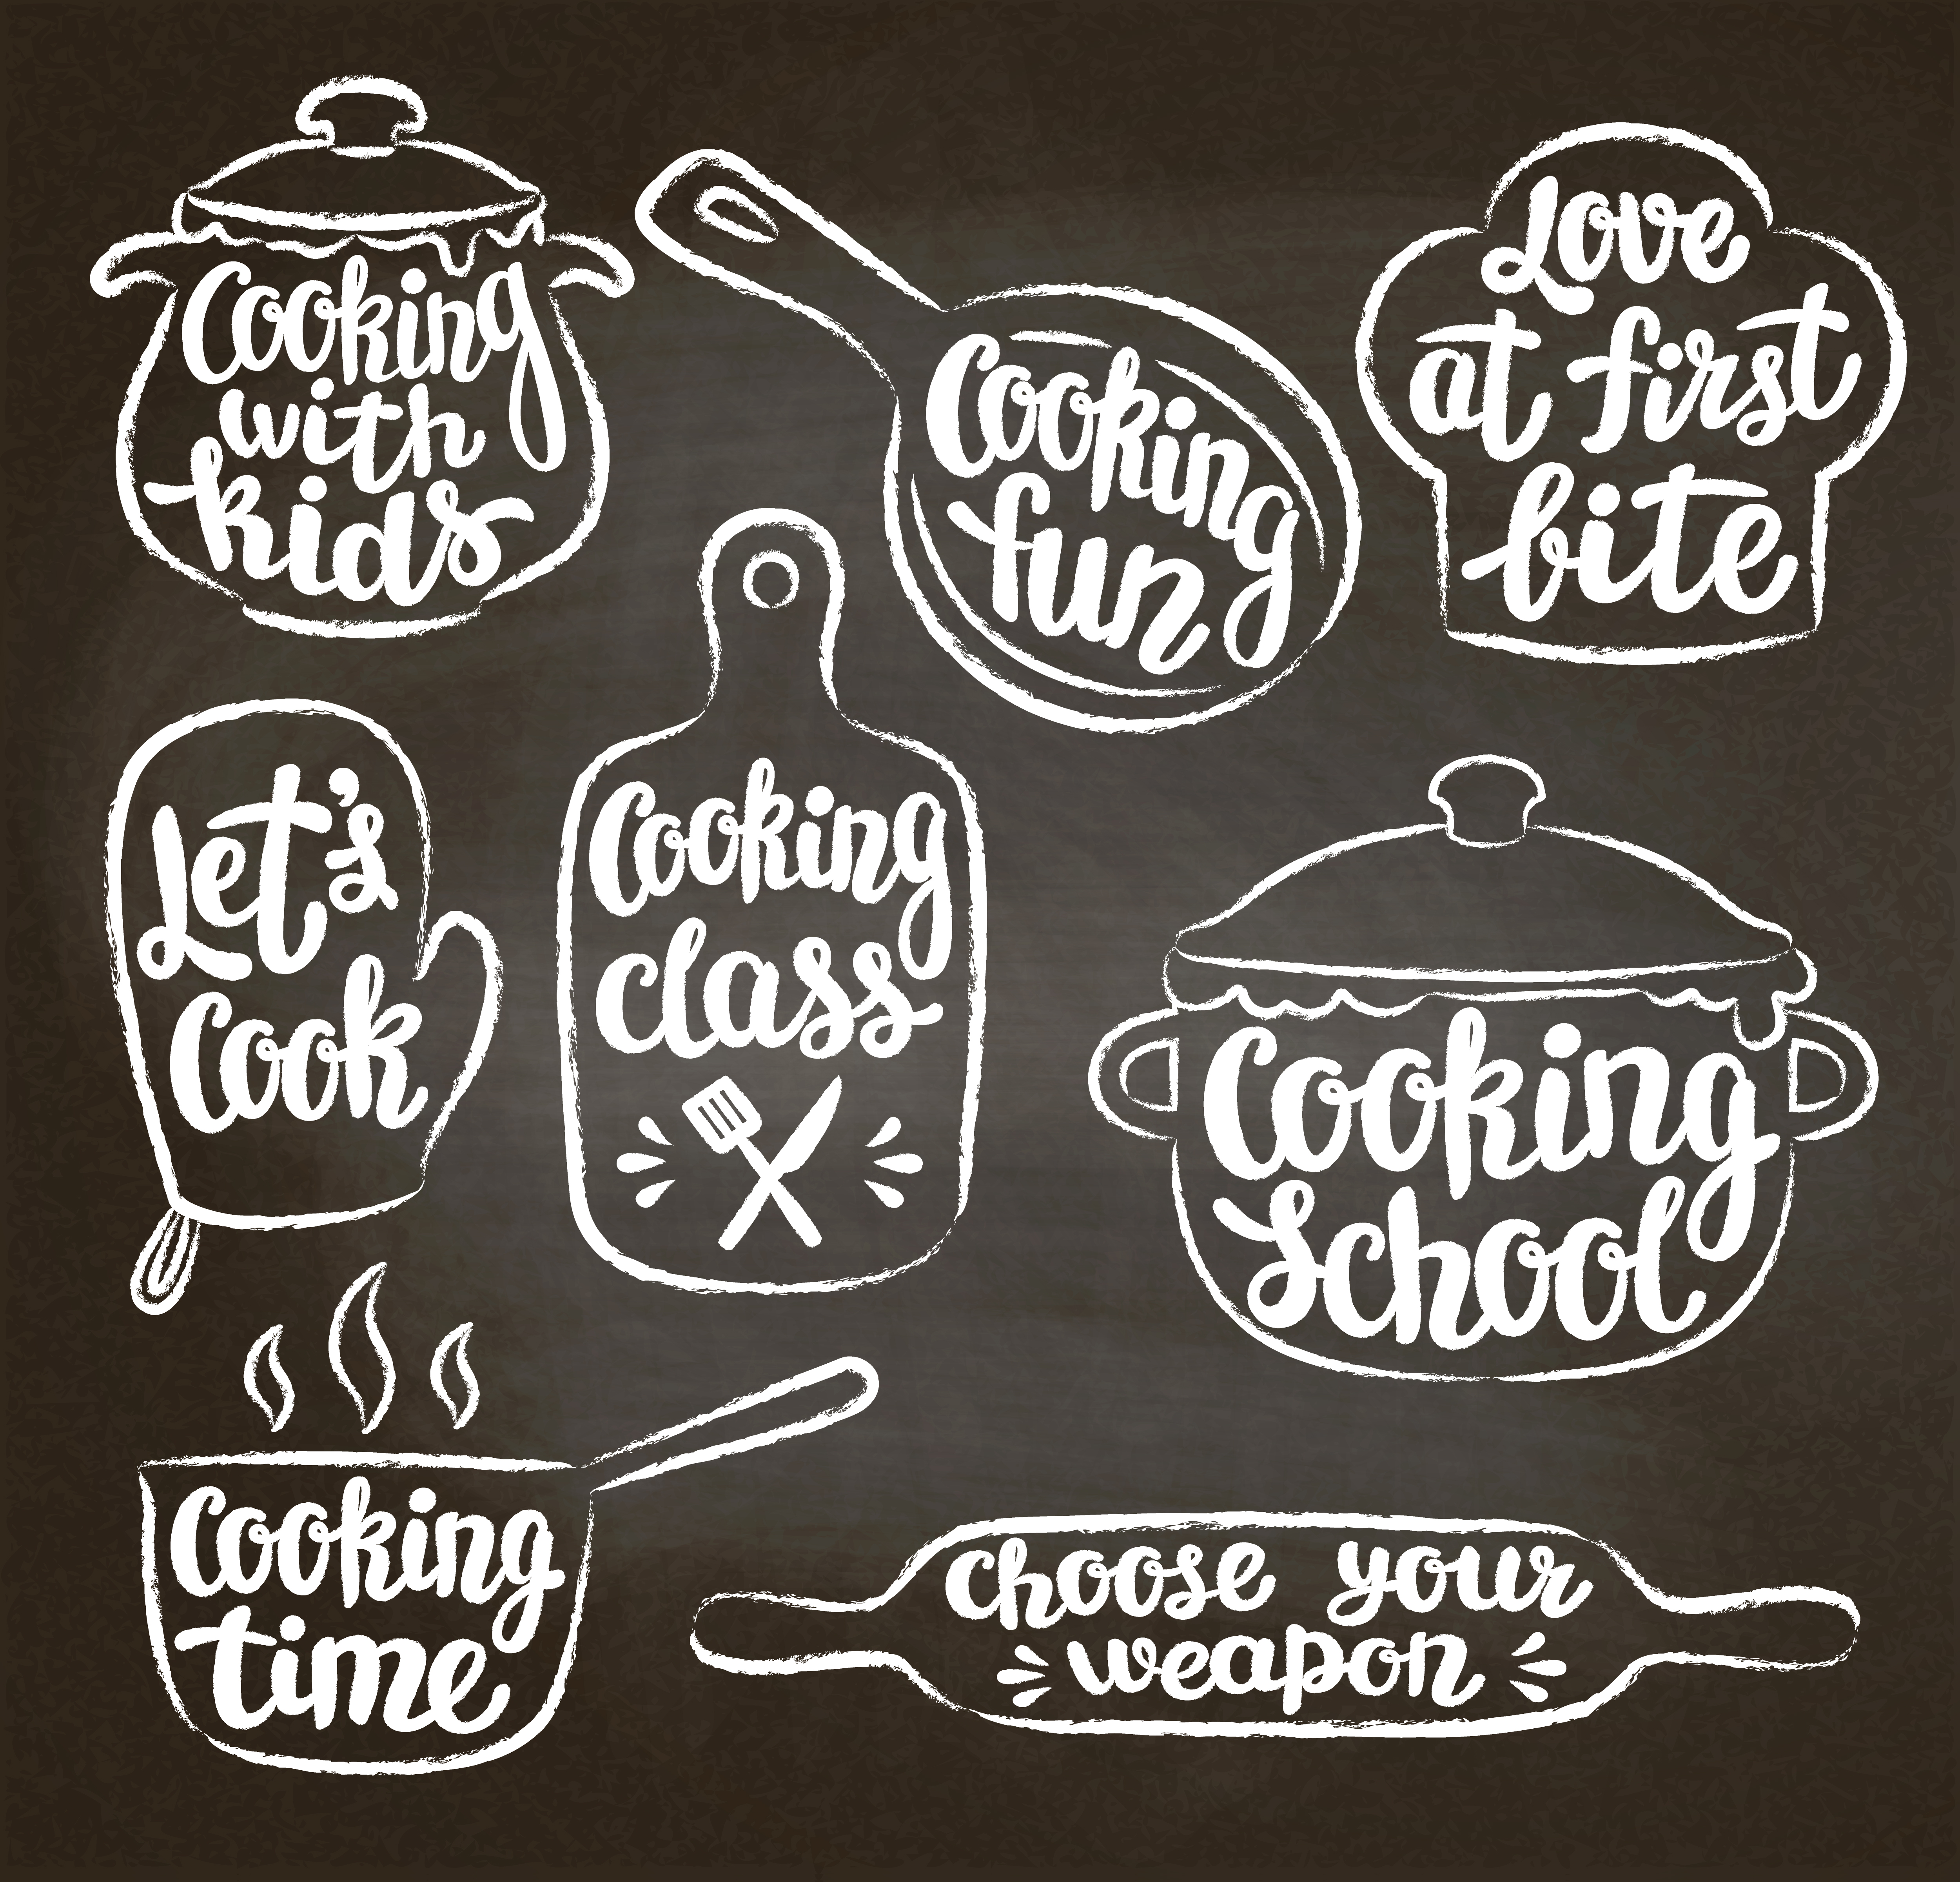 Cooking
with
kids
Cooking
fun
Love
at first
bite
Let's
Cook
Cooking
class
Cooking
School
Cooking
time
choose your
weapon